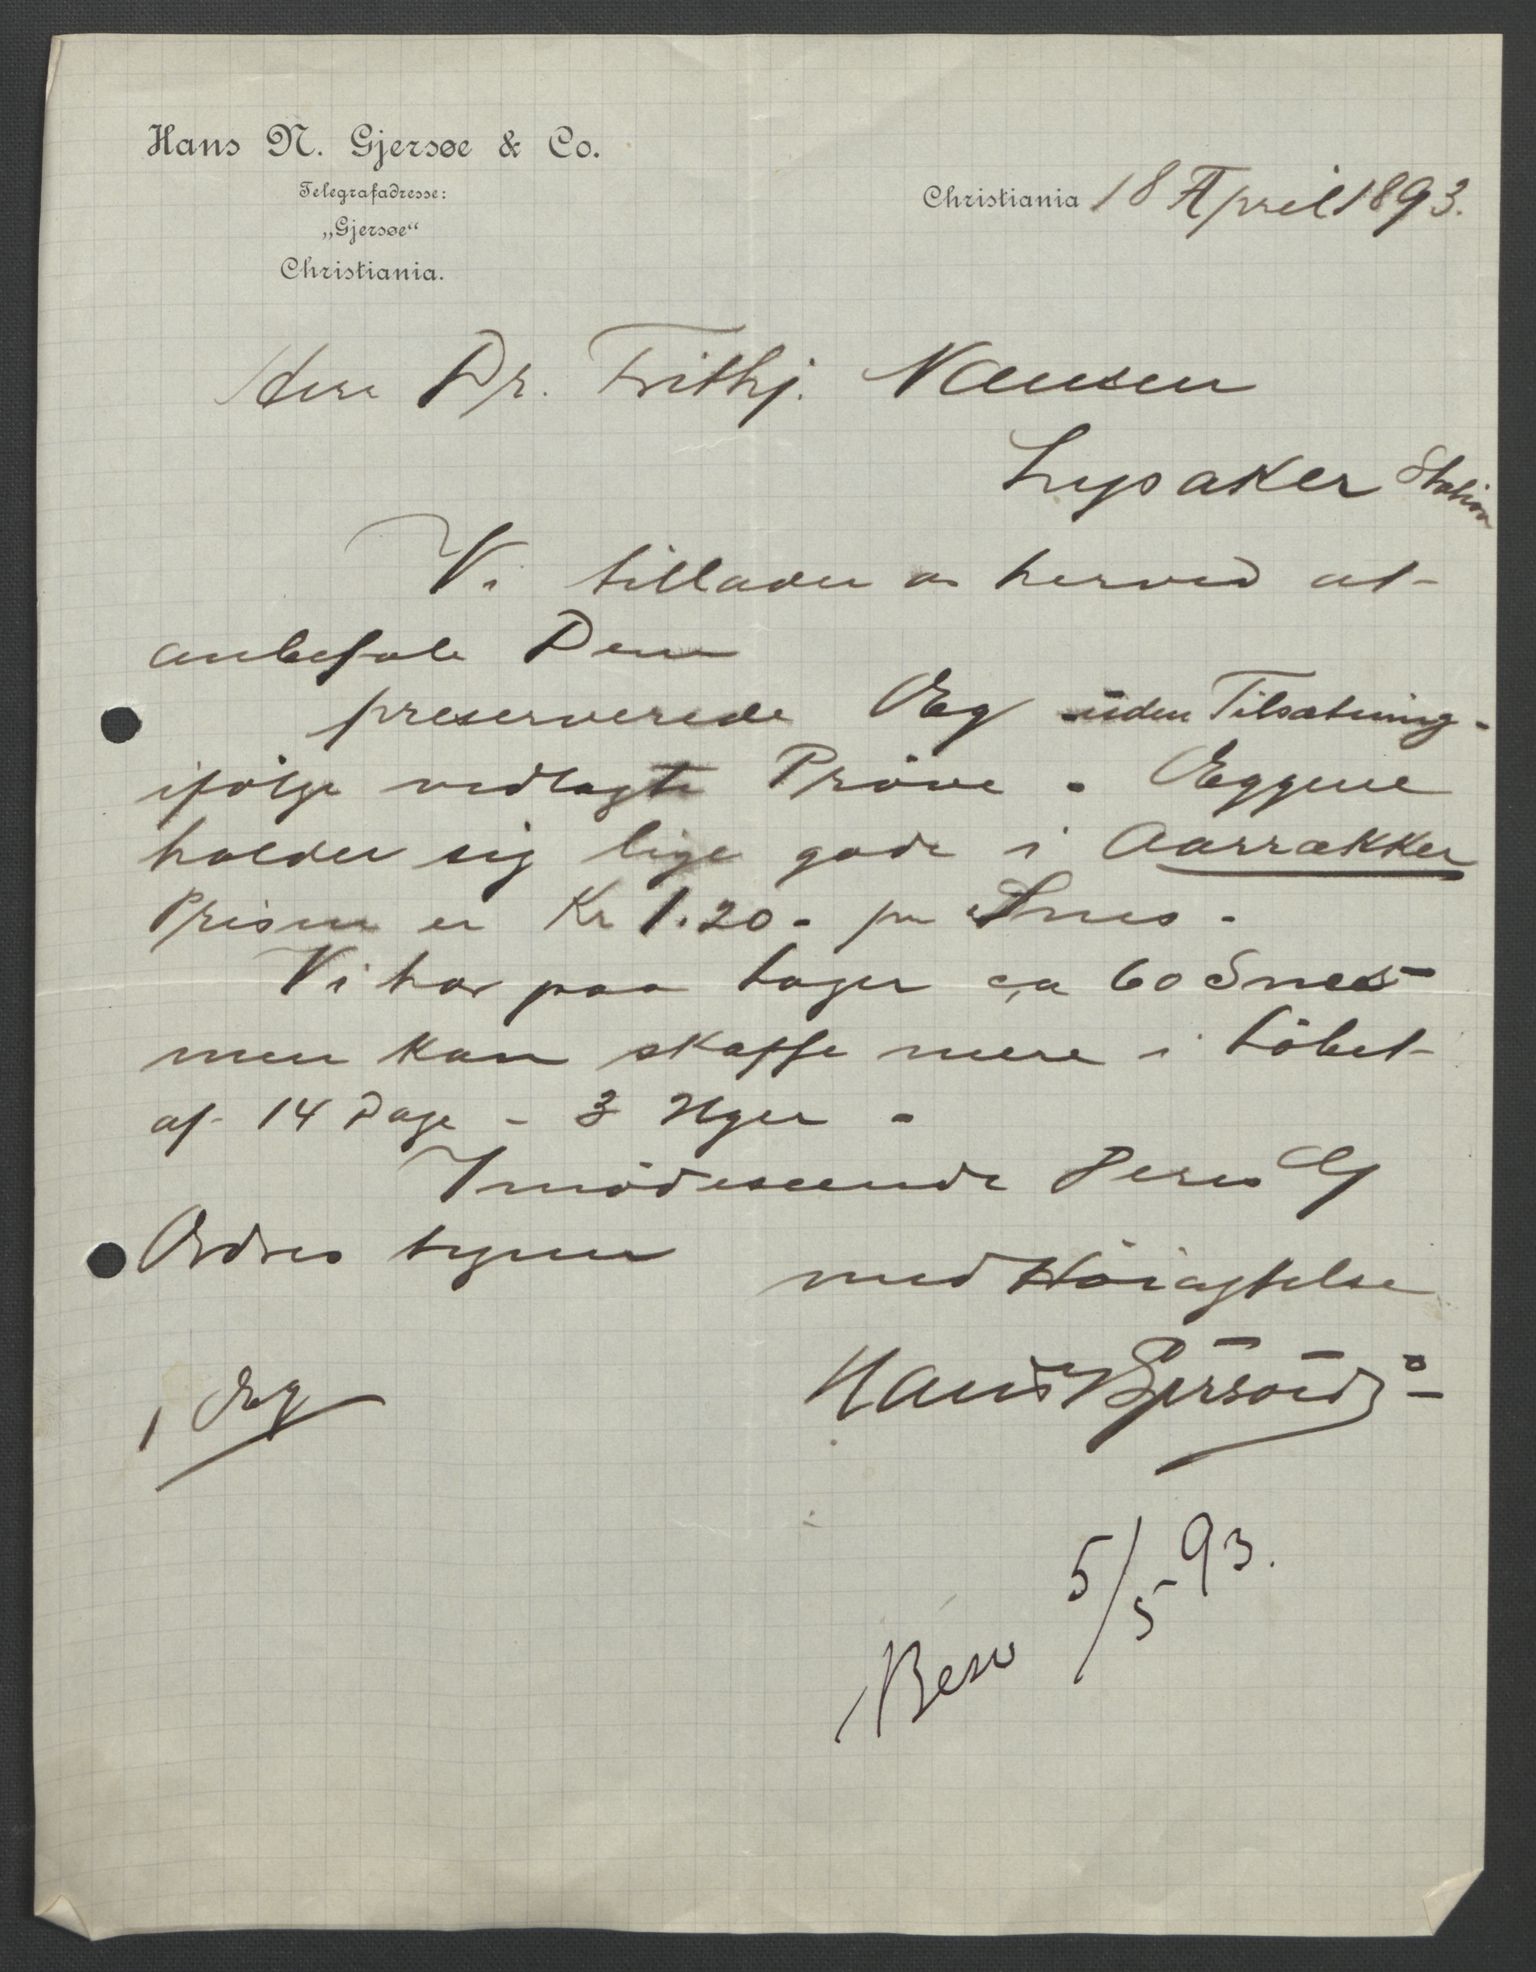 Hans N. Gjersøe & Co.
Telegrafadresse:
„Gjersøe“
Christiania.
Christiania 18 April 1893.
Herr Dr. Frithj. Nansen
Lysaker Station
Vi tillader os herved at
anbefale Dem
preserverede Æg uden Tilsætning -
ifölge vedlagte Pröve. Æggene
holder sig lige gode i Aarrækker
Prisen er Kr 1.20 - pr Snes -
Vi har paa Lager ca 60 Snes
men kan skaffe mere i Löbet
af 14 Dage - 3 Uger -
Imödeseende Deres
Ordres tegner
med Höiagtelse
Hans N Gjersöe & Co
1 Æg
Besv 5/5 93.